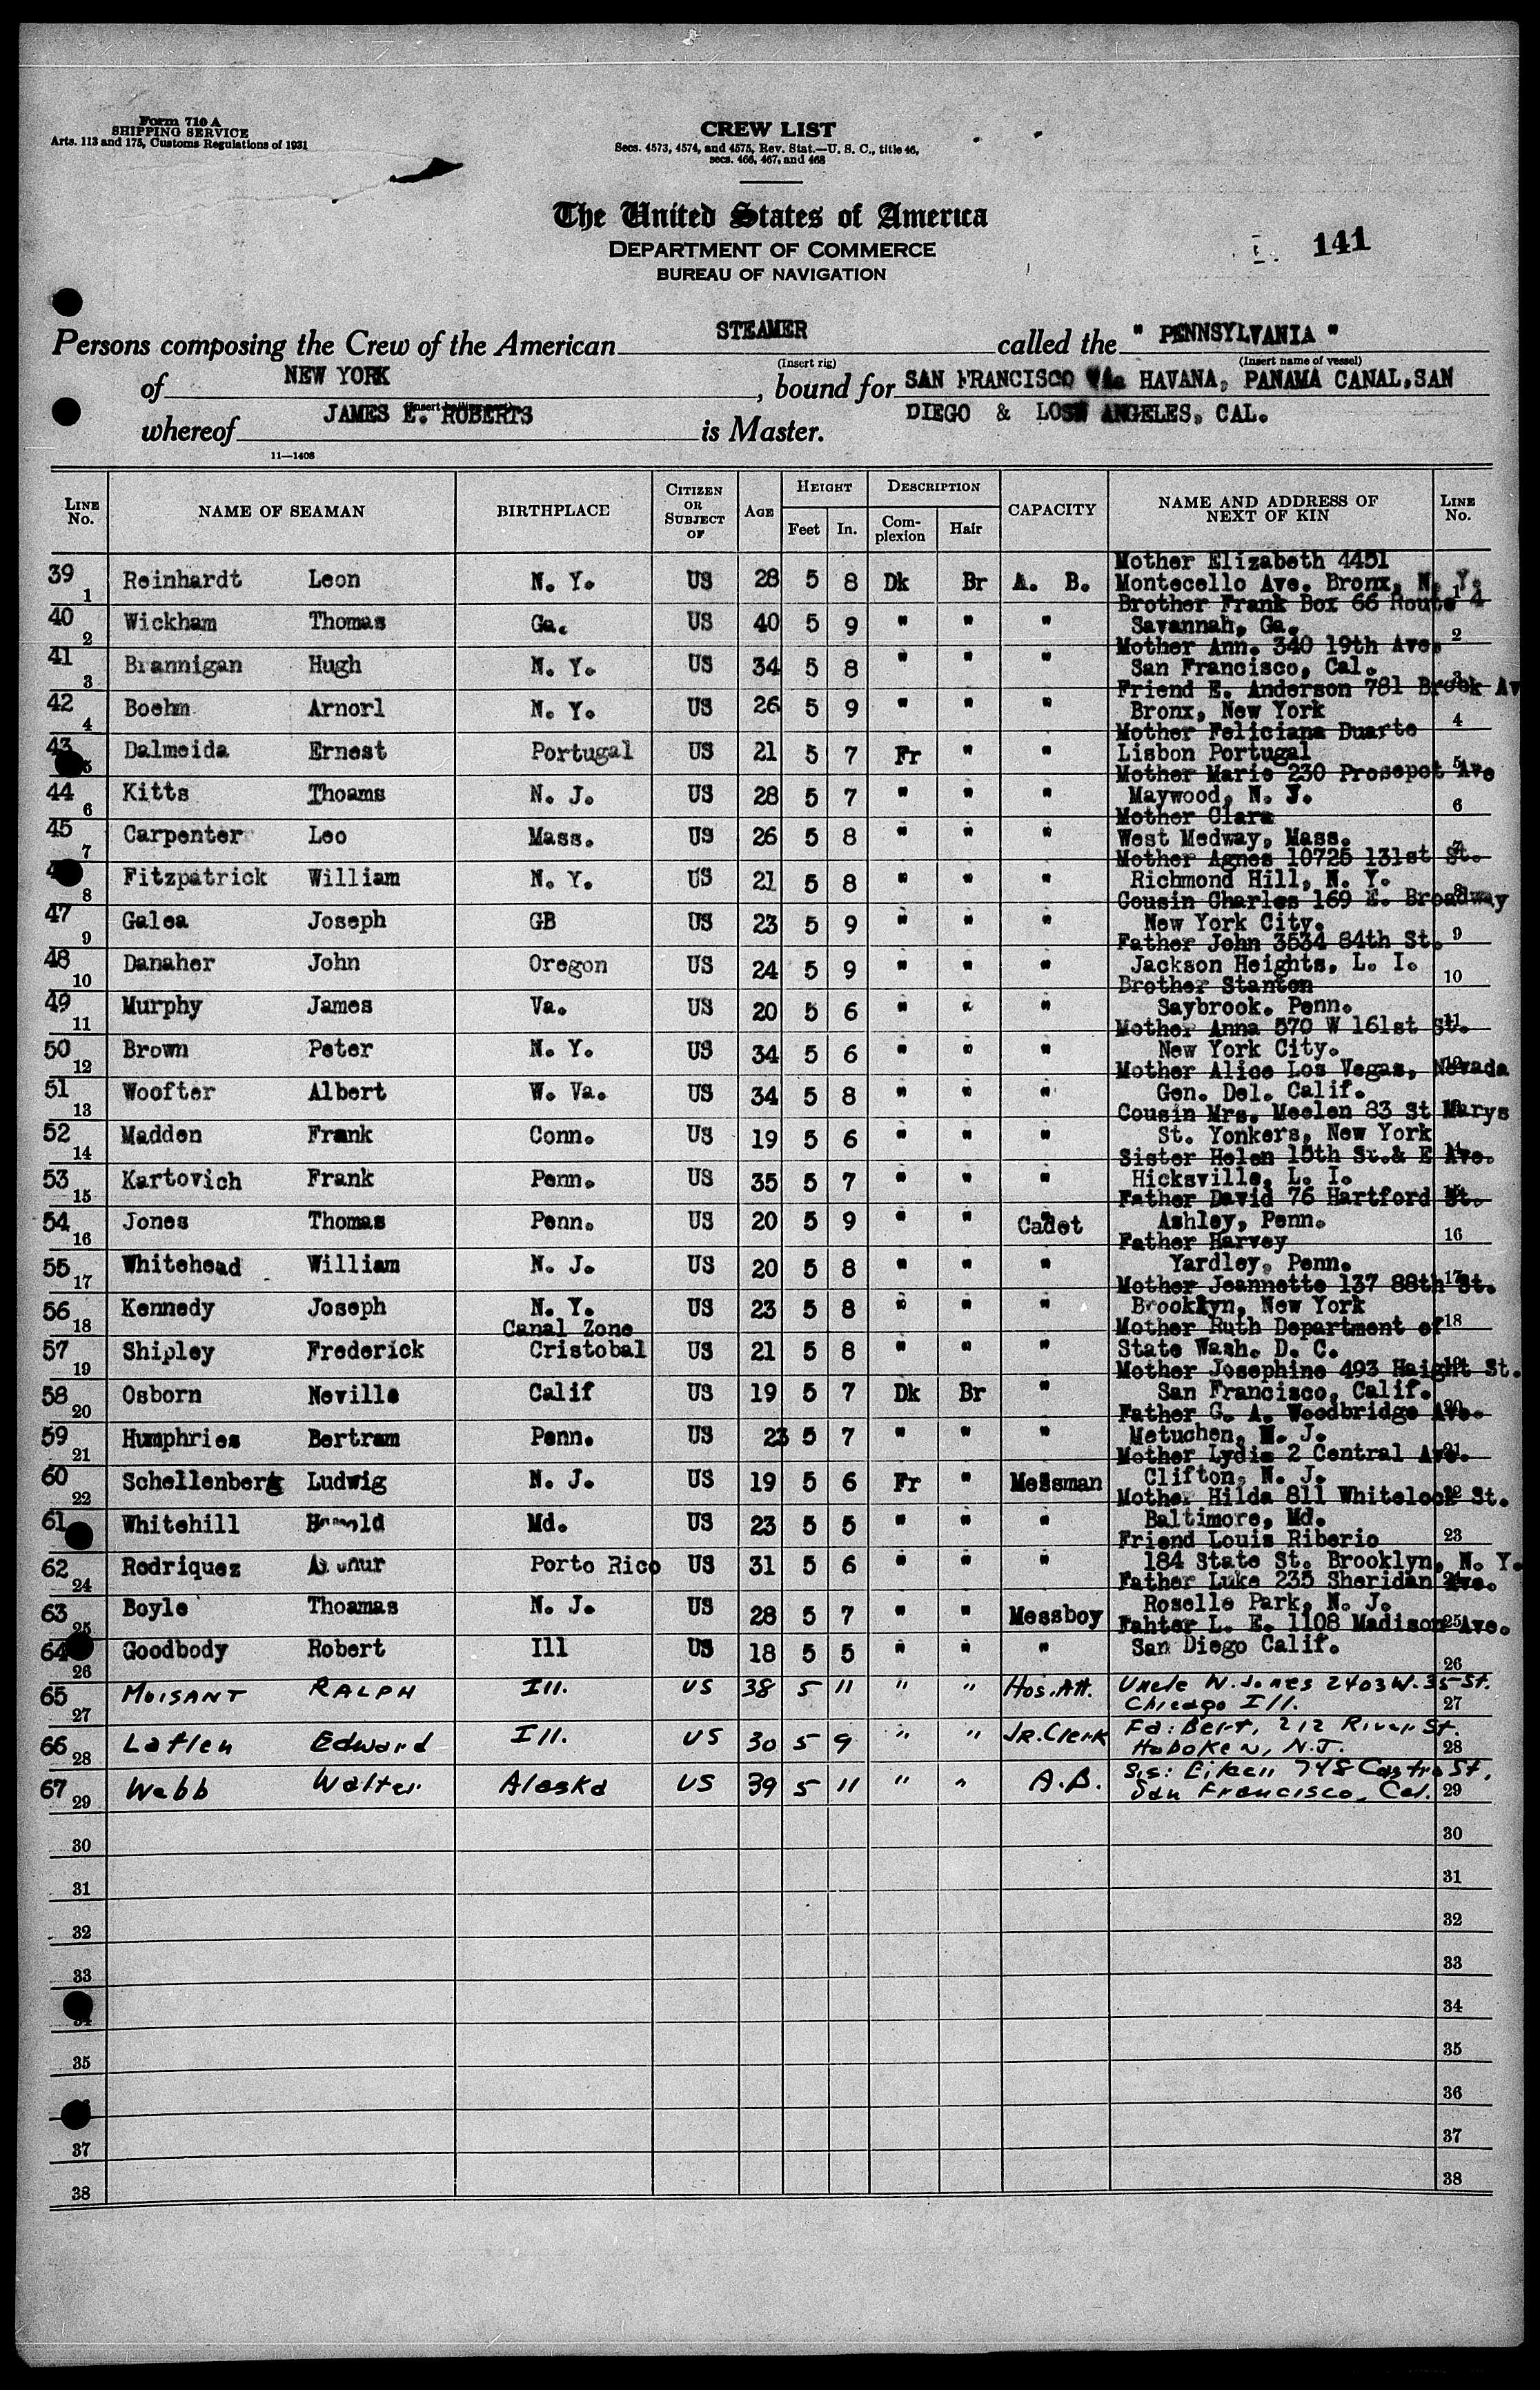 Form 710 A
SHIPPING SERVICE
Arts. 113 and 175, Customs Regulations of 1931
CREW LIST
Secs. 4573, 4574, and 4575, Rev. Stat.—U. S. C., title 46,
secs. 466, 467, and 468
The United States of America
DEPARTMENT OF COMMERCE
BUREAU OF NAVIGATION
141
Persons composing the Crew of the American STEAMER called the " PENNSYLVANIA "
(Insert rig) (Insert name of vessel)
of NEW YORK, bound for SAN FRANCISCO Via HAVANA, PANAMA CANAL, SAN
whereof JAMES E. ROBERTS is Master. DIEGO & LOS ANGELES, CAL.
11—1408
LINE No. NAME OF SEAMAN BIRTHPLACE CITIZEN OR SUBJECT OF AGE HEIGHT Feet In. DESCRIPTION Complexion Hair CAPACITY NAME AND ADDRESS OF NEXT OF KIN LINE No.
39 1 Reinhardt Leon N. Y. US 28 5 8 Dk Br A. B. Mother Elizabeth 4451 Montecello Ave. Bronx, N. Y. 1
40 2 Wickham Thomas Ga. US 40 5 9 " " " Brother Frank Box 66 Route 4 Savannah, Ga. 2
41 3 Brannigan Hugh N. Y. US 34 5 8 " " " Mother Ann. 340 19th Ave. San Francisco, Cal. 3
42 4 Boehm Arnorl N. Y. US 26 5 9 " " " Friend E. Anderson 781 Brook Av Bronx, New York 4
43 5 Dalmeida Ernest Portugal US 21 5 7 Fr " " Mother Feliciana Duarte Lisbon Portugal 5
44 6 Kitts Thoams N. J. US 28 5 7 " " " Mother Marie 230 Prosepot Ave Maywood, N. J. 6
45 7 Carpenter Leo Mass. US 26 5 8 " " " Mother Clara West Medway, Mass. 7
8 Fitzpatrick William N. Y. US 21 5 8 " " " Mother Agnes 10725 131st St. Richmond Hill, N. Y. 8
47 9 Galea Joseph GB US 23 5 9 " " " Cousin Charles 169 E. Broadway New York City. 9
48 10 Danaher John Oregon US 24 5 9 " " " Father John 3534 84th St. Jackson Heights, L. I. 10
49 11 Murphy James Va. US 20 5 6 " " " Brother Stanton Saybrook. Penn. 11
50 12 Brown Peter N. Y. US 34 5 6 " " " Mother Anna 570 W 161st St. New York City. 12
51 13 Woofter Albert W. Va. US 34 5 8 " " " Mother Alice Los Vegas, Nevada Gen. Del. Calif. 13
52 14 Madden Frank Conn. US 19 5 6 " " " Cousin Mrs. Meelen 83 St Marys St. Yonkers, New York 14
53 15 Kartovich Frank Penn. US 35 5 7 " " " Sister Helen 15th St.& E Ave. Hicksville, L. I. 15
54 16 Jones Thomas Penn. US 20 5 9 " " Cadet Father David 76 Hartford St. Ashley, Penn. 16
55 17 Whitehead William N. J. US 20 5 8 " " " Father Harvey Yardley, Penn. 17
56 18 Kennedy Joseph N. Y. US 23 5 8 " " " Mother Jeannette 137 88th St. Brooklyn, New York 18
57 19 Shipley Frederick Canal Zone Cristobal US 21 5 8 " " " Mother Ruth Department of State Wash. D. C. 19
58 20 Osborn Neville Calif US 19 5 7 Dk Br " Mother Josephine 493 Haight St. San Francisco, Calif. 20
59 21 Humphries Bertram Penn. US 23 5 7 " " " Father G. A. Woodbridge Ave. Metuchen, N. J. 21
60 22 Schellenberg Ludwig N. J. US 19 5 6 Fr " Messman Mother Lydia 2 Central Ave. Clifton, N. J. 22
61 Whitehill Harold Md. US 23 5 5 " " " Mother Hilda 811 Whitelock St. Baltimore, Md. 23
62 24 Rodriquez Arthur Porto Rico US 31 5 6 " " " Friend Louis Riberio 184 State St. Brooklyn, N. Y. 24
63 25 Boyle Thoamas N. J. US 28 5 7 " " Messboy Father Luke 235 Sheridan Ave. Roselle Park, N. J. 25
64 26 Goodbody Robert Ill US 18 5 5 " " " Fahter L. E. 1108 Madison Ave. San Diego Calif. 26
65 27 MOISANT RALPH Ill. US 38 5 11 " " Hos. Att. Uncle W. Jones 2403 W. 35 St. Chicago Ill. 27
66 28 Laflen Edward Ill. US 30 5 9 " " JR. Clerk Fa: Bert, 212 River St. Hoboken, N.J. 28
67 29 Webb Walter Alaska US 39 5 11 " " A.B. Sis: 748 Castro St, San Francisco, Cal. 29
30 30
31 31
32 32
33 33
34 34
35 35
36
37 37
38 38